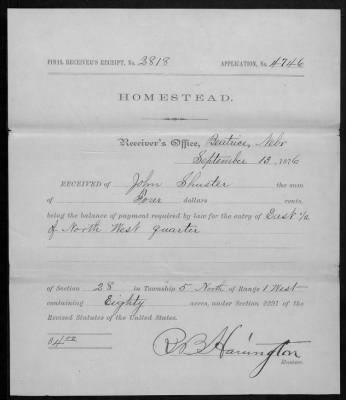 FINAL RECEIVER'S RECEIPT, No. 2818 APPLICATION, No. 4746
HOMESTEAD.
Receiver's Office, Beatrice, Nebr
September 13, 1876
RECEIVED of John Shuster the sum
of Four dollars cents,
being the balance of payment required by law for the entry of East 1/2
of North West quarter
of Section 28 in Township 5 North of Range 1 West
containing Eighty acres, under Section 2291 of the
Revised Statutes of the United States.
$4.00
R B Harrington
Receiver.